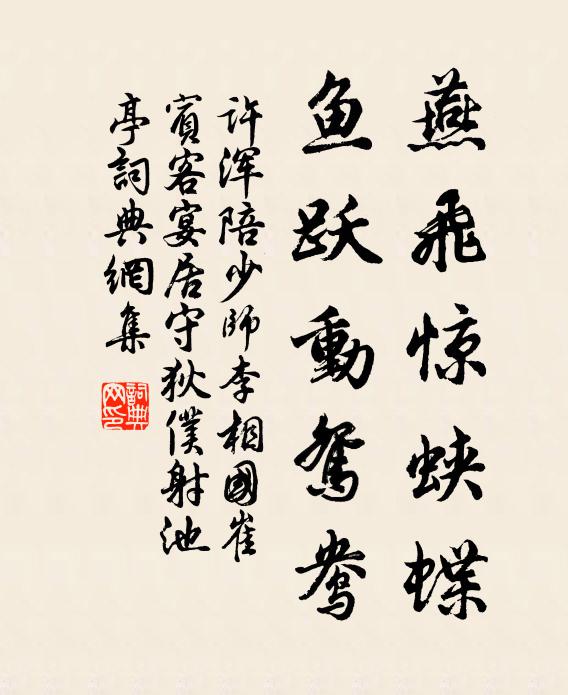 燕飛惊蛱蝶
鱼跃動鴛鴦
许浑陪少師李相國崔
賓客宴居守狄僕射池
亭詞典網集
詞典网印